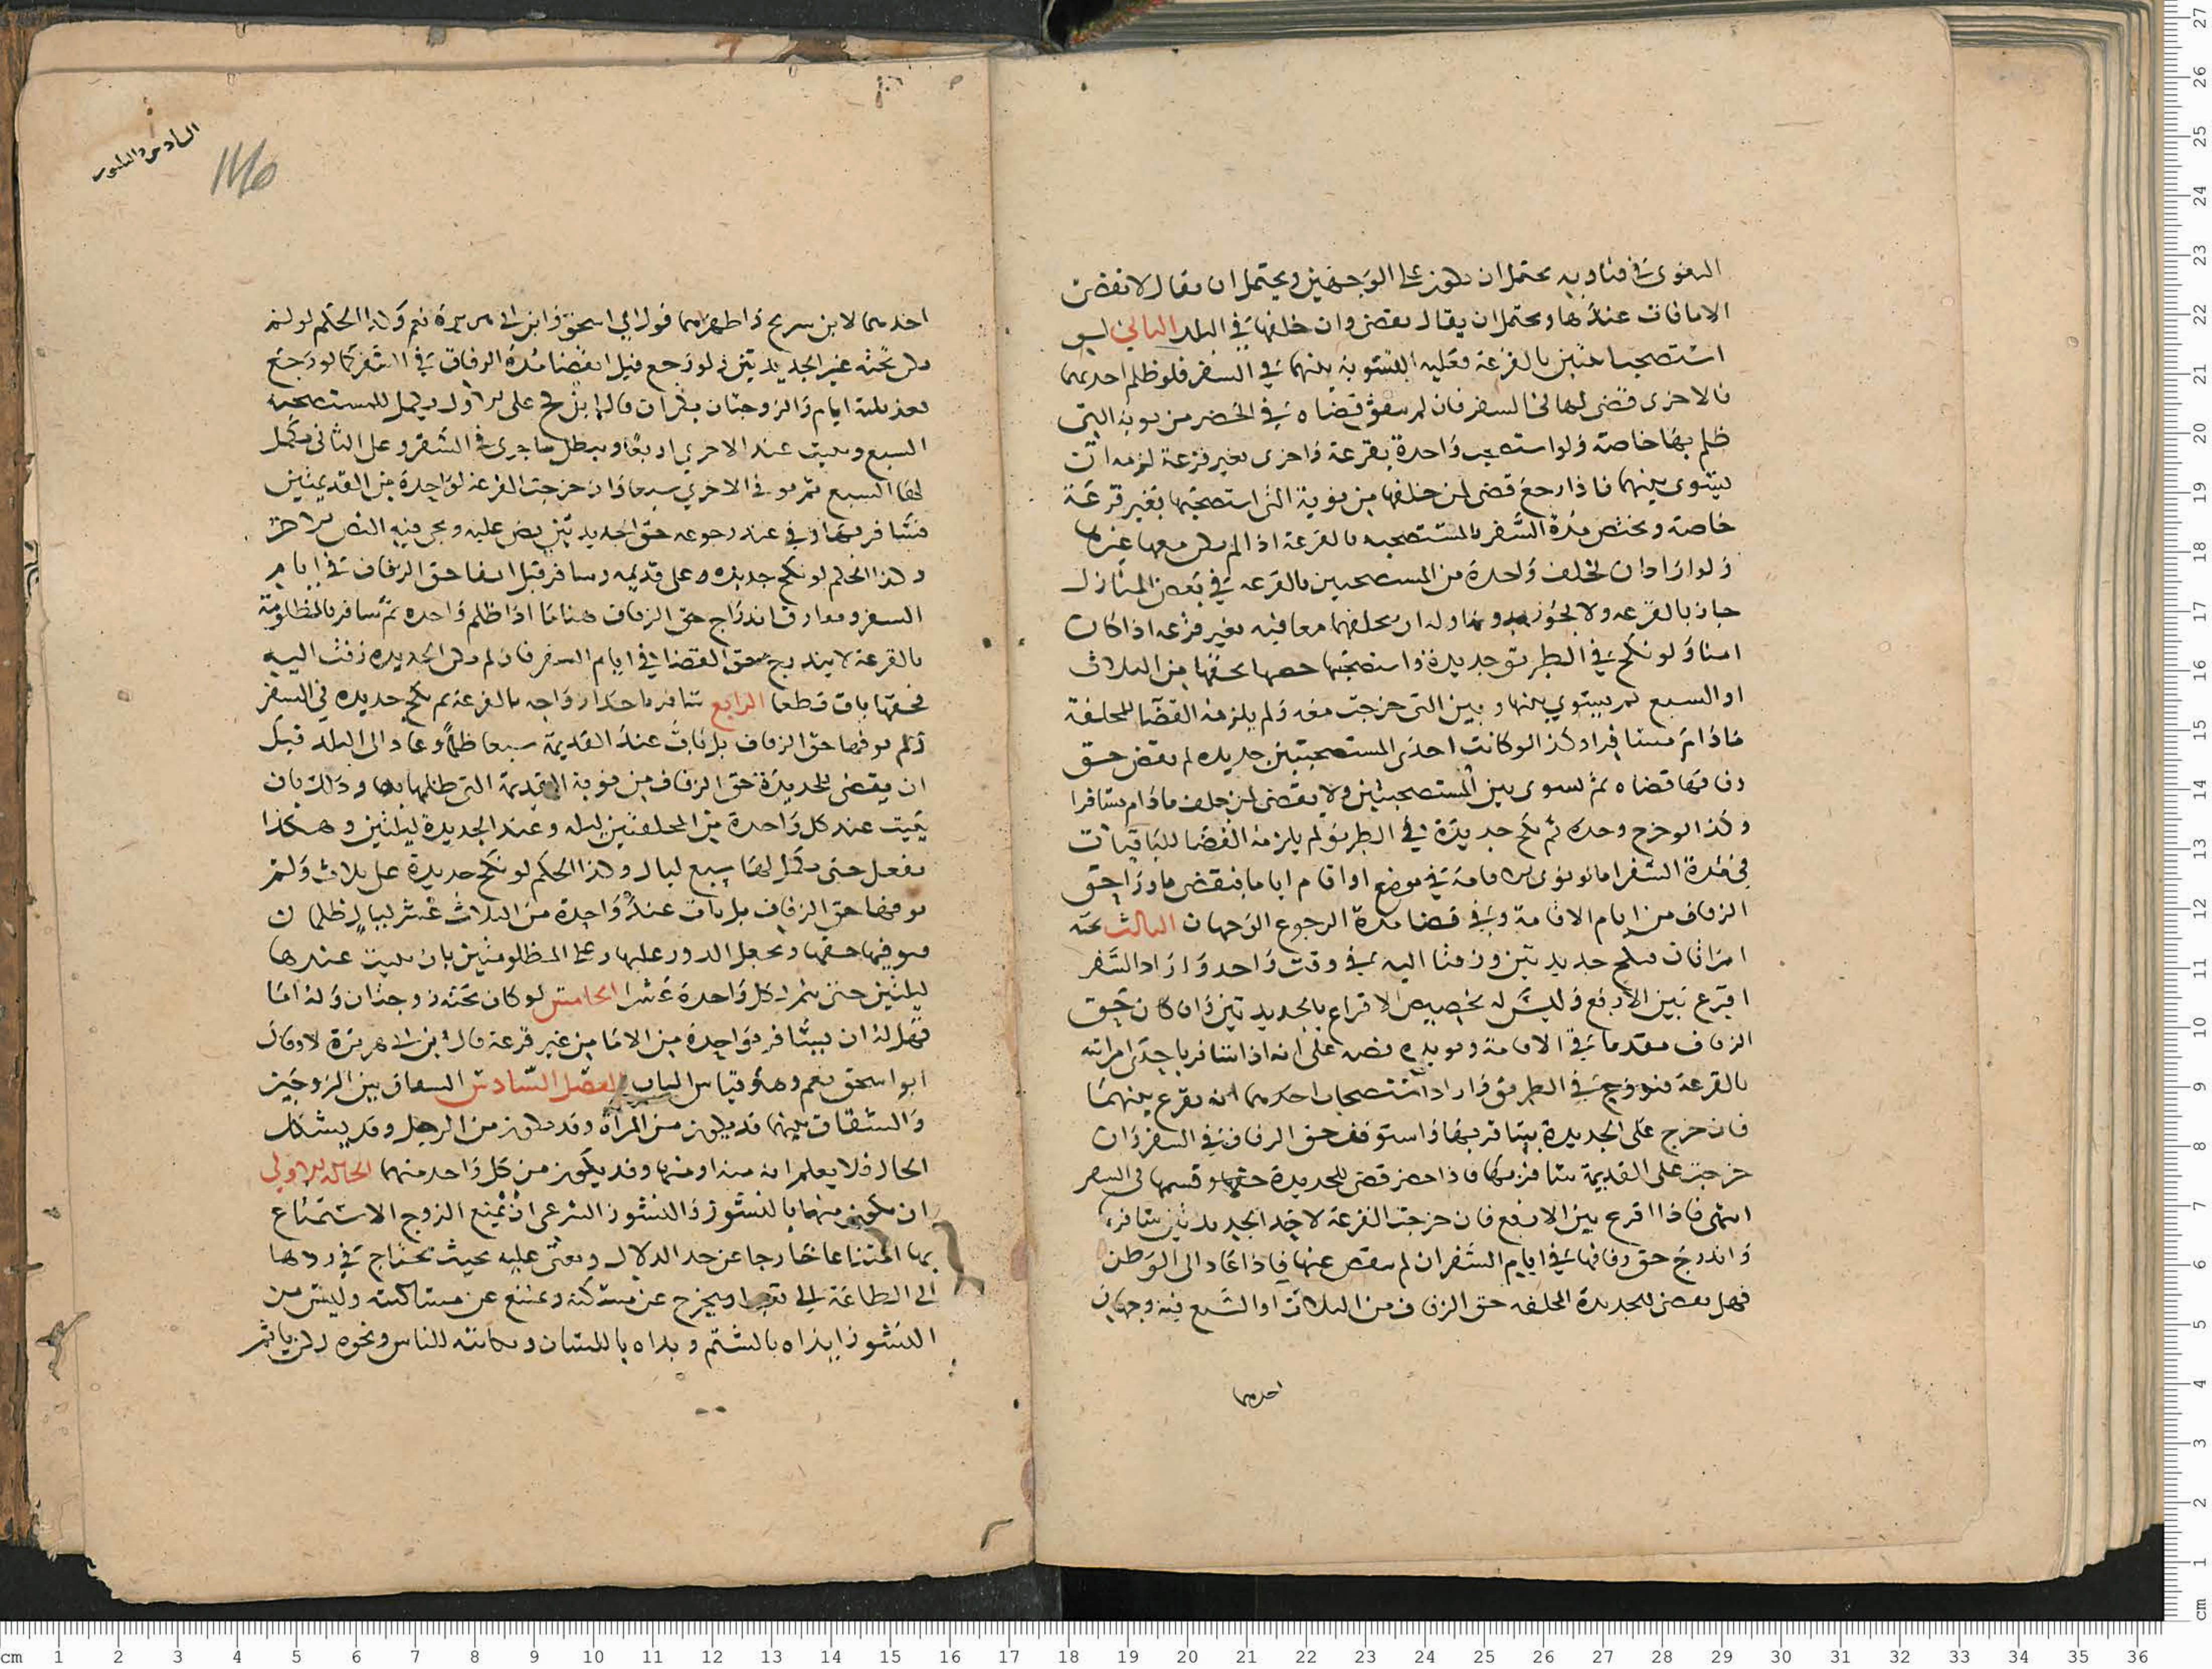 البغوي في فتاويه يحتمل ان يكون على الوجهين ويحتمل ان يقال لا يقضي
الاما فات عندها ويحتمل ان يقال يقضي وان خلفها في البلد الثاني لو
استصحب اثنتين بالقرعة فعليه التسوية بينهما في السفر فلو ظلم احديهما
بالاخرى قضى لها في السفر فان لم يتفق قضاه في الحضر من نوبة التي
ظلم بها خاصة ولو استصحب واحدة بقرعة واخرى بغير قرعة لزمه ان
يسوي بينهما فاذا رجع قضى لمن خلفها من نوبة التي استصحبها بغير قرعة
خاصة وتختص مدة السفر بالمستصحبه بالقرعة اذا لم يكن معها غيرها
ولو اراد ان يخلف واحدة من المستصحبين بالقرعه في بعض المنازل
جاز بالقرعه ولا يجوز بدونها وله ان يخلفهما معا فيه بغير قرعه اذا كان
امنا ولو نكح في الطريق جديدة واستصحبها خصها بحقها من الثلاث
او السبع ثم يسوي بينها وبين التي خرجت معه ولم يلزمه القضا للمخلفة
مادام مسافرا وكذا لو كانت احدى المستصحبتين جديده لم يقض حق
زفافها قضاه ثم يسوي بين المستصحبتين ولا يقضي لمن خلف مادام مسافرا
وكذا لو خرج وحده ثم نكح جديدة في الطريق لم يلزمه القضا للباقيات
في مدة السفر اما لو نوى الاقامة في موضع او اقام اياما فيقضي ما ورا حق
الزفاف من ايام الاقامة وفي قضا مدة الرجوع الوجهان الثالث تحته
امراتان فنكح جديدتين وزفتا اليه في وقت واحد واراد السفر
اقرع بين الاربع وليس له تخصيص الاقراع بالجديدتين وان كان حق
الزفاف مقدما في الاقامة ويويده نصه على انه اذا سافر باحدى امراته
بالقرعة فتزوج في الطريق واراد استصحاب احديهما انه يقرع بينهما
فان خرج على الجديدة يسافر بها واستوفت حق الزفاف في السفر وان
خرجت على القديمة سافر بها فاذا حضر قضى للجديدة حقها وقسمها في السفر
انتهى فاذا اقرع بين الاربع فان خرجت القرعة لاحد الجديدتين سافر
واندرج حق زفافها في ايام السفر ان لم ينقص عنها فاذا عاد الى الوطن
فهل يقضي للجديدة المخلفه حق الزفاف من الثلاث او السبع فيه وجهان
احديهما
السادس والثلثون
احديهما لابن سريج واظهرهما قول ابي اسحق وابن ابي هريرة نعم وكذا الحكم لو لم
يكن تحته غير الجديدتين ولو رجع قبل انقضا مدة الزفاف في السفر كما لو رجع
بعد ثلثة ايام والزوجتان بكران قال ابن كج على الاول يكمل للمستصحبه
السبع ويبيت عند الاخرى اربعا ويبطل ما جرى في السفر وعلى الثاني يكمل
لها السبع ثم يوفي الاخري سبعا وان خرجت القرعة لواحدة من القديمتين
فسافر بها وفي عند رجوعه حق الجديدتين نص عليه ويجي فيه النص الاخر
وكذا الحكم لو نكح جديده وعلى قديمه وسافر قبل ايفا حق الزفاف في ايام
السفر ومعارف اندراج حق الزفاف هنا ما اذا ظلم واحده ثم سافر بالمظلومة
بالقرعة لا يندرج حق القضا في ايام السفر فان لم تكن الجديده زفت اليه
فحقها باق قطعا الرابع سافر باحد ازواجه بالقرعة ثم نكح جديده في السفر
ولم يوفها حق الزفاف بل بات عند القديمة سبعا ظلما وعاد الى البلد قبل
ان يقضي للجديدة حق الزفاف من نوبة القديمة التي ظلمها بها وذلك بان
يبيت عند كل واحدة من المخلفتين ليله وعند الجديدة ليلتين وهكذا
يفعل حتى يكمل لها سبع ليال وكذا الحكم لو نكح جديدة على ثلاث ولم
يوفها حق الزفاف بل بات عند واحدة من الثلاث عشر ليال ظلما
فيوفيها حقها ويجعل الدور عليها وعلى المظلومتين بان يبيت عندها
ليلتين حتى يتم لكل واحدة عشرا الخامس لو كان تحته زوجتان وله اما
فهل له ان يسافر بواحدة من الاما من غير قرعة قال ابن ابي هريرة لا وقال
ابو اسحق نعم وهو قياس الباب الفصل السادس الشقاق بين الزوجين
والشقاق بينهما قد يكون من المرأة وقد يكون من الرجل وقد يشكل
الحال فلا يعلم انه منه او منها وقد يكون من كل واحد منهما الحالة الاولي
ان يكون منها بالنشوز والنشوز الشرعي ان تمنع الزوج الاستمتاع
بها امتناعا خارجا عن حد الدلال وتعصى عليه بحيث يحتاج في ردها
الى الطاعة الى تعب او يخرج عن مسكنه وتمتنع عن مساكنته وليس من
النشوز ايذاه بالشتم وبذاه باللسان وشكايته للناس ونحوه لكن ياثم